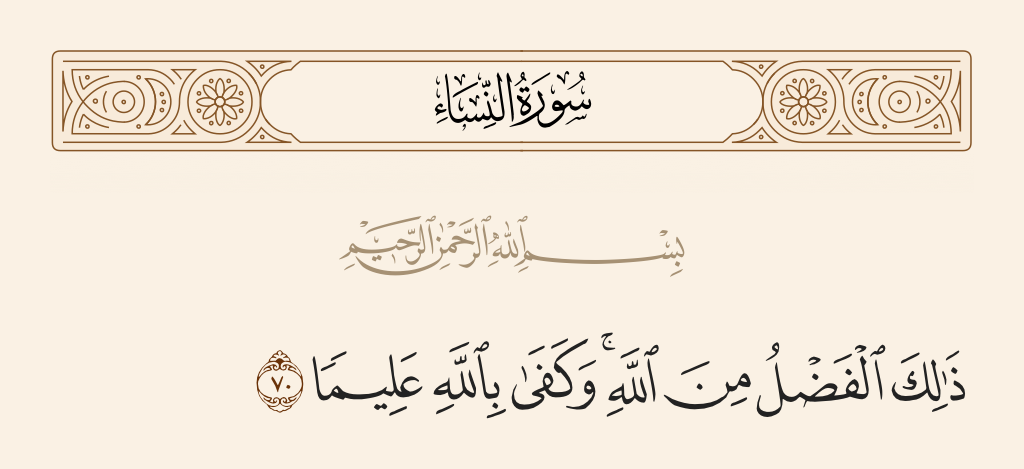 سُورَةُ النِّسَاءِ
بِسْمِ ٱللَّهِ ٱلرَّحْمَٰنِ ٱلرَّحِيمِ
ذَٰلِكَ ٱلْفَضْلُ مِنَ ٱللَّهِ ۚ وَكَفَىٰ بِٱللَّهِ عَلِيمًا ٧٠